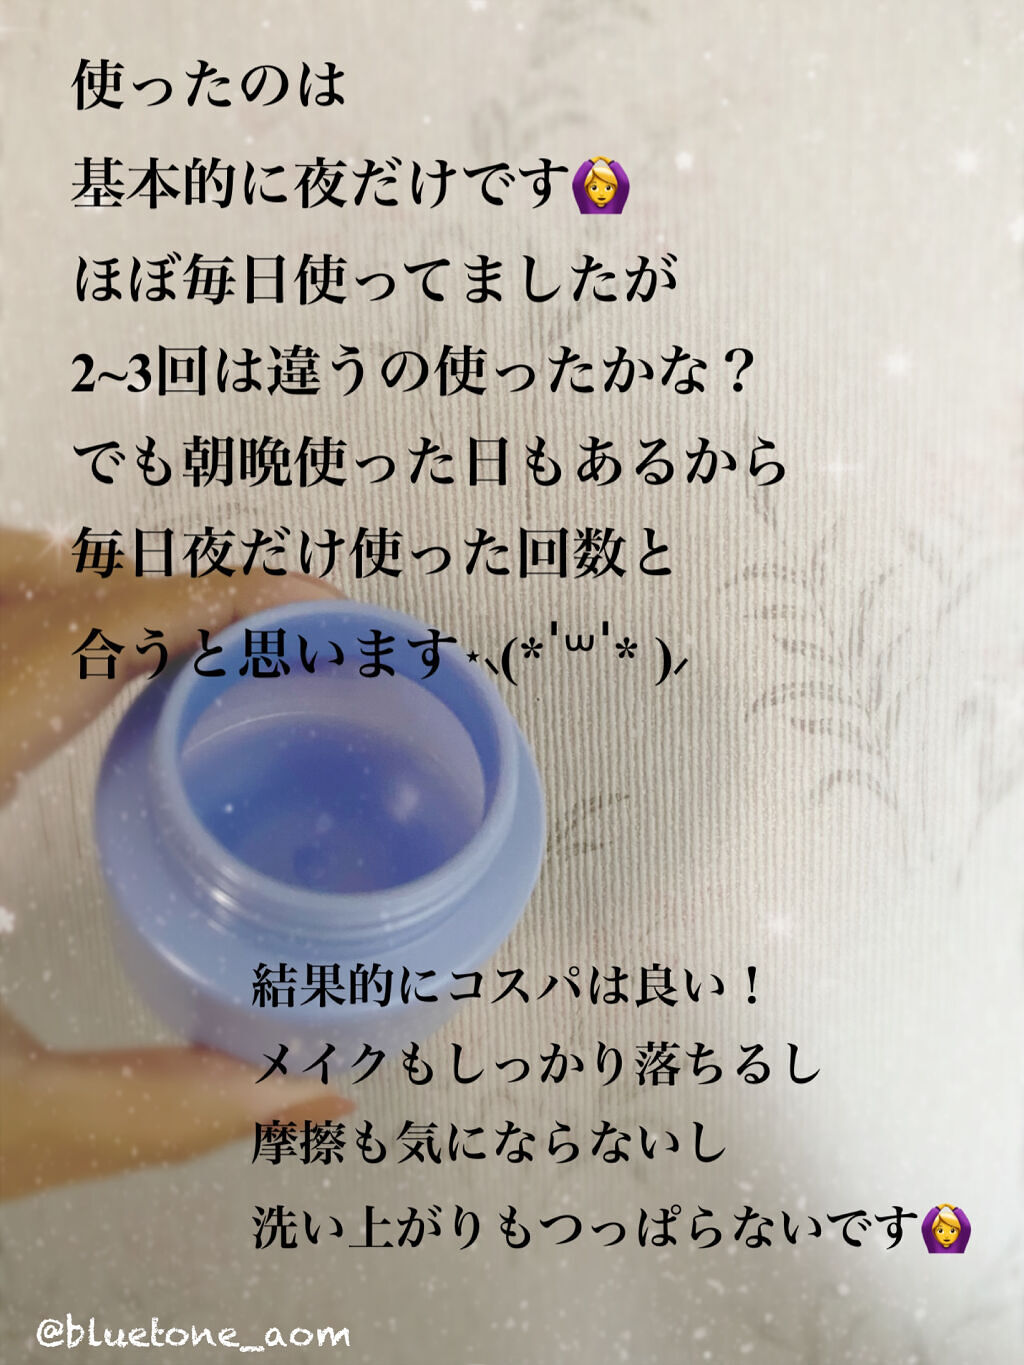 使ったのは
基本的に夜だけです🙆‍♀️
ほぼ毎日使ってましたが
2~3回は違うの使ったかな？
でも朝晩使った日もあるから
毎日夜だけ使った回数と
合うと思います⋆⸜(*ˈ꒳ˈ* )⸝
結果的にコスパは良い！
メイクもしっかり落ちるし
摩擦も気にならないし
洗い上がりもつっぱらないです🙆‍♀️
@bluetone_aom